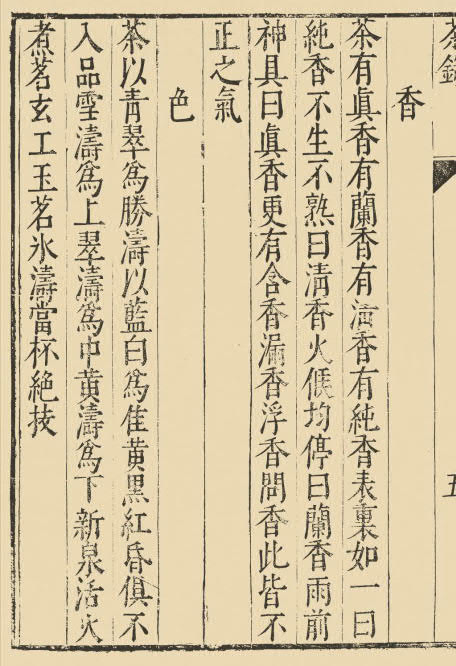 茶錄
五
香
茶有眞香有蘭香有清香有純香表裏如一曰
純香不生不熟曰清香火候均停曰蘭香雨前
神具曰眞香更有含香漏香浮香問香此皆不
正之氣
色
茶以青翠爲勝濤以藍白爲佳黄黑紅昏俱不
入品雪濤爲上翠濤爲中黄濤爲下新泉活火
煮茗玄工玉茗氷濤當杯絶技